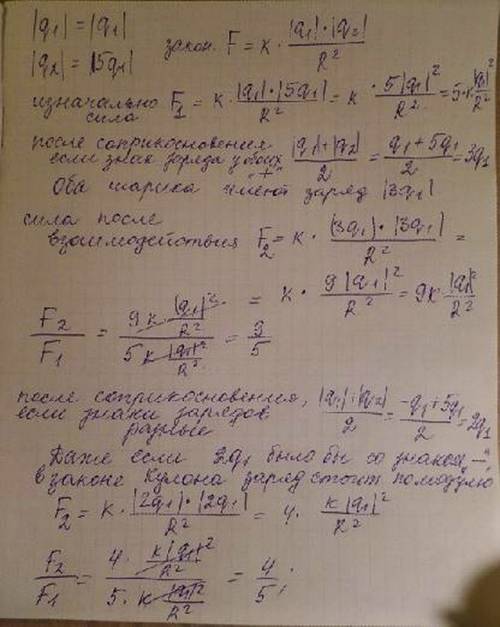 |q₁| = |q₁|
|q₂| = |5q₁|
закон. F = к · |q₁|·|q₂| / R²
изначально сила F₁ = к · |q₁|·|5q₁| / R² = к · 5|q₁|² / R² = 5·к |q₁|² / R²
после соприкосновения
если знак заряда у обоих "+" |q₁|+|q₂| / 2 = q₁+5q₁ / 2 = 3q₁
Оба шарика имеют заряд |3q₁|
сила после
взаимодействия F₂ = к · |3q₁|·|3q₁| / R² =
= к · 9|q₁|² / R² = 9к · |q₁|² / R²
F₂ / F₁ = 9к · |q₁|² / R² / 5к |q₁|² / R² = 9 / 5
после соприкосновения,
если знаки зарядов
разные |q₁|+|q₂| / 2 = -q₁+5q₁ / 2 = 2q₁
Даже если 2q₁ было бы со знаком "—"
в законе Кулона заряд стоит по модулю
F₂ = к · |2q₁|·|2q₁| / R² = 4 · к|q₁|² / R²
F₂ / F₁ = 4 · к|q₁|² / R² / 5 · к |q₁|² / R² = 4 / 5 ;